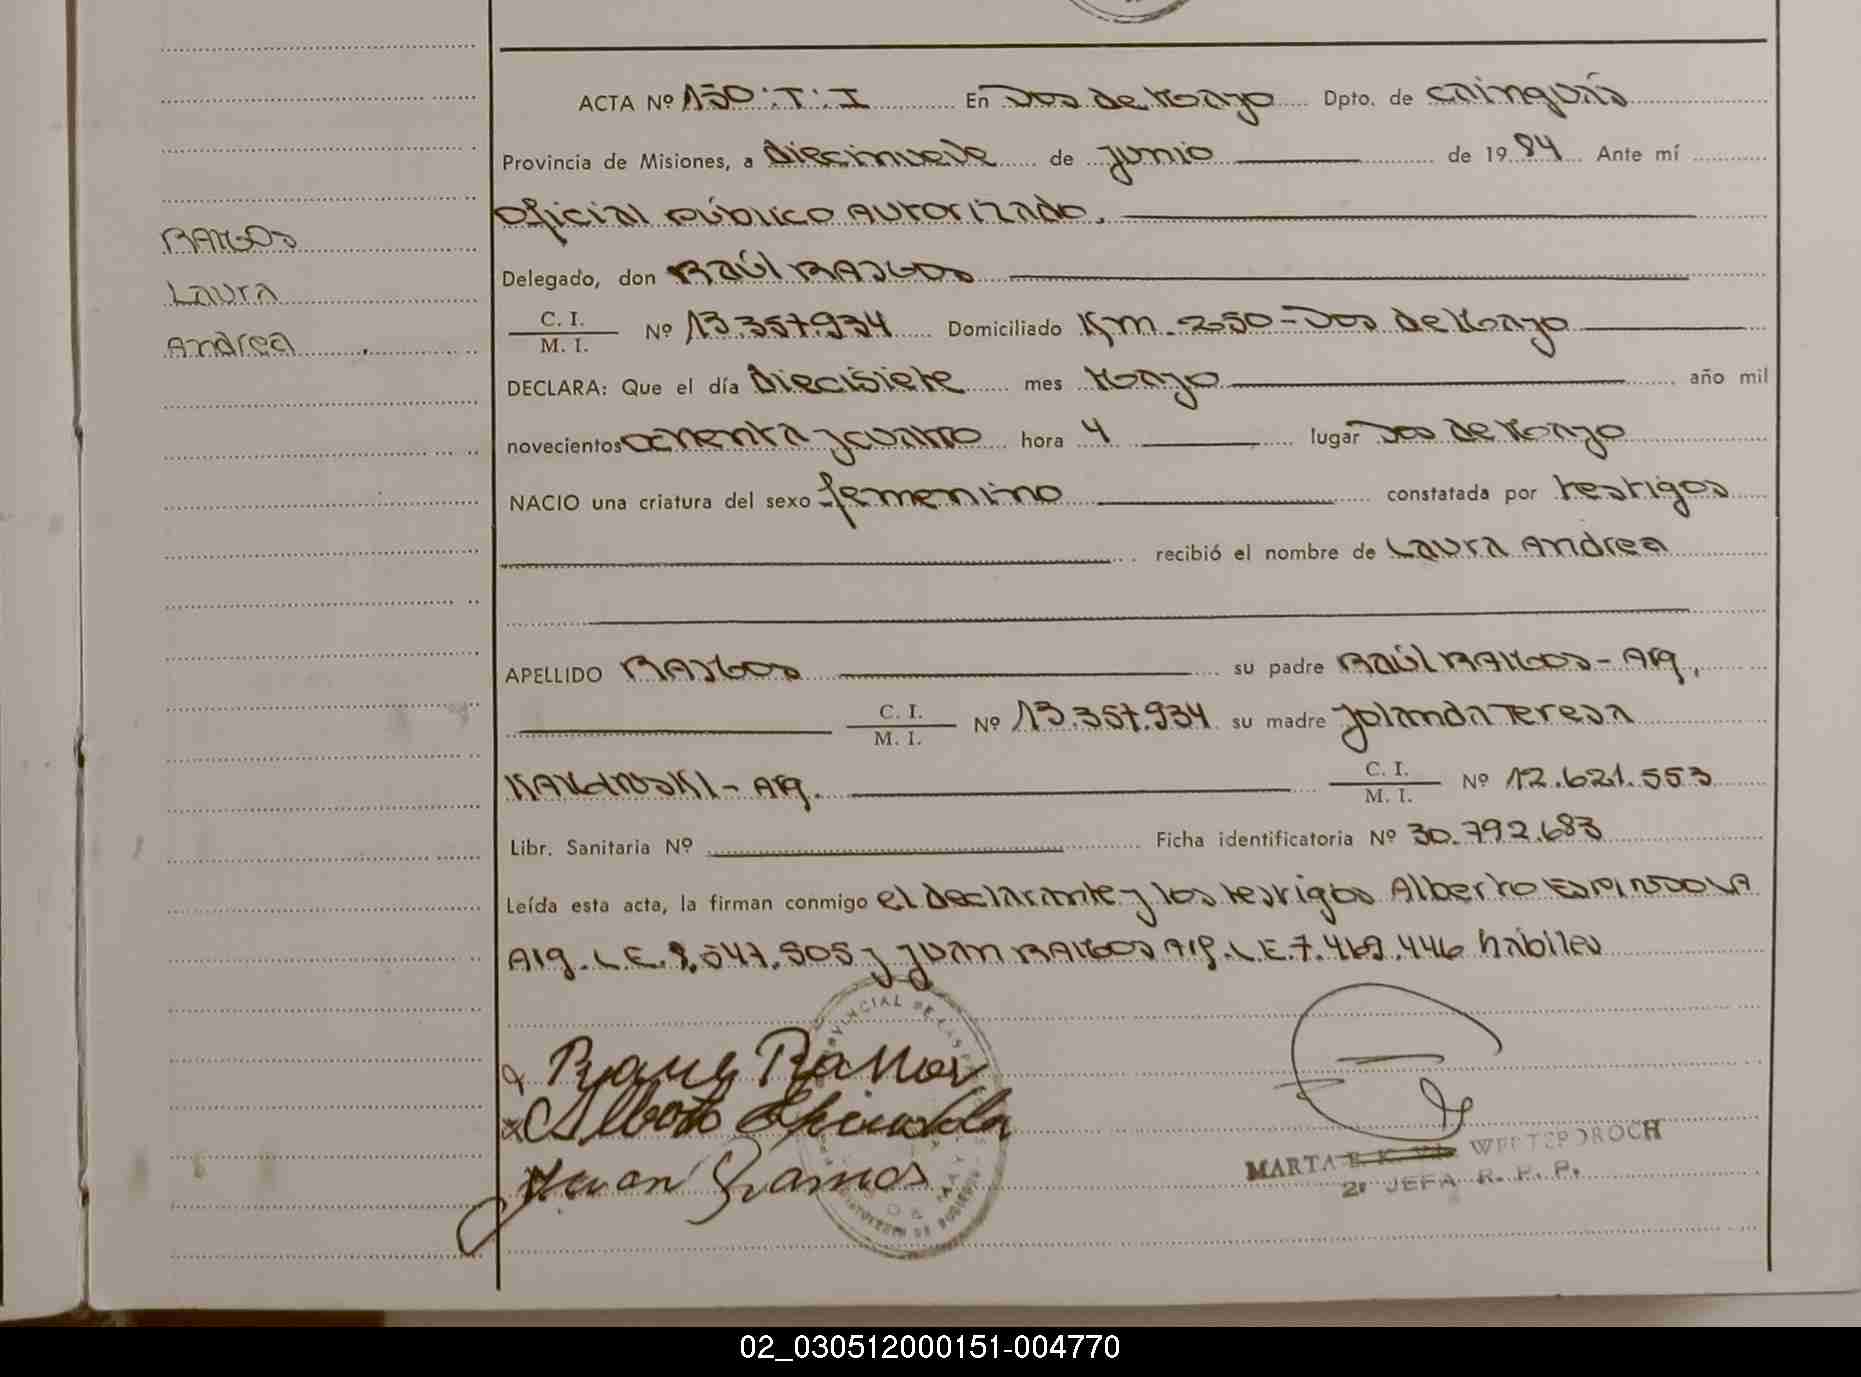 ACTA Nº 150.T.I En Dos de Mayo Dpto. de Cainguás
Provincia de Misiones, a diecinueve de junio de 1984 Ante mí
oficial público autorizado.
RAMOS
Delegado, don Raúl RAMOS
Laura
C. I. / M. I. Nº 13.357.934 Domiciliado Km. 250 - Dos de Mayo
Andrea
DECLARA: Que el día diecisiete mes Mayo año mil
novecientos ochenta y cuatro hora 4 lugar Dos de Mayo
NACIO una criatura del sexo femenino constatada por testigos
recibió el nombre de Laura Andrea
APELLIDO RAMOS su padre Raúl RAMOS - Arg.
C. I. / M. I. Nº 13.357.934 su madre Yolanda Teresa
- Arg. C. I. / M. I. Nº 12.621.553
Libr. Sanitaria Nº Ficha identificatoria Nº 30.792.683
Leída esta acta, la firman conmigo el declarante y los testigos Alberto ESPINDOLA
Arg. L.E. y Juan RAMOS Arg. L.E. 7.469.446 hábiles
Raul Ramos
Alberto Espindola
Juan Ramos
MARTA
2ª JEFA R. P. P.
02_030512000151-004770